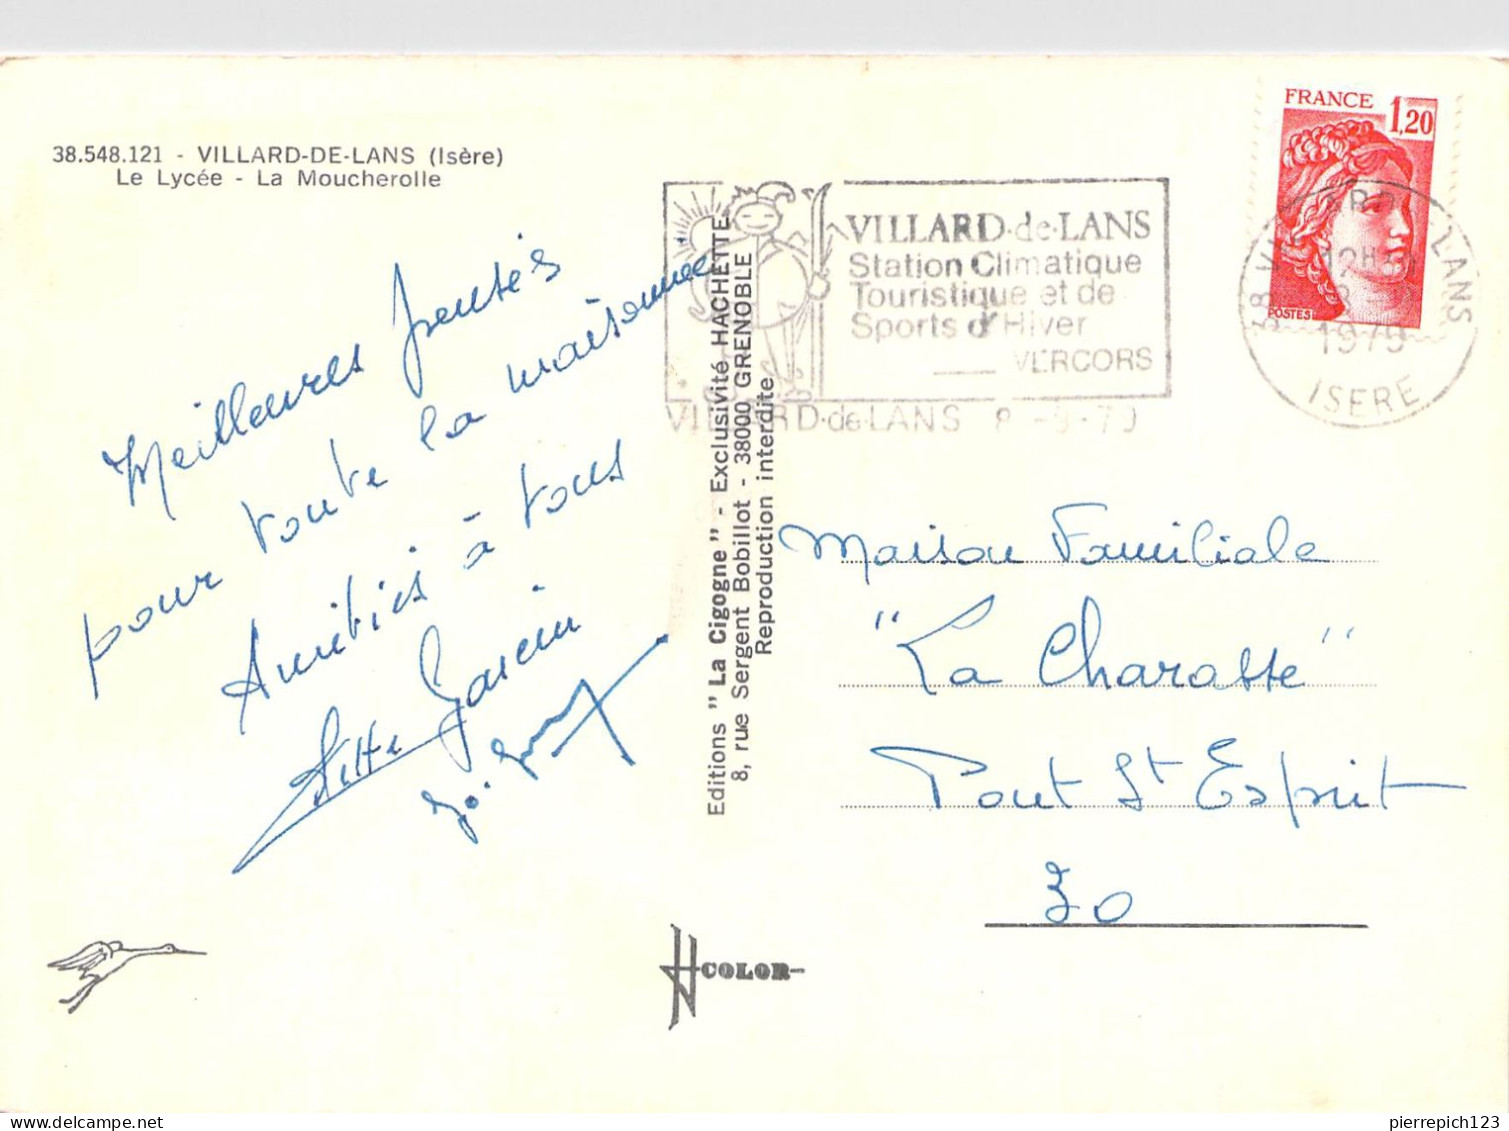 38.548.121 - VILLARD-DE-LANS (Isère)
Le Lycée - La Moucherolle
Meilleures pensées
pour toute la maisonnée
Amitiés à tous
Garcin
Editions " La Cigogne " - Exclusivité HACHETTE
8, rue Sergent Bobillot - 38000 GRENOBLE
Reproduction interdite
VILLARD-de-LANS
Station Climatique
Touristique et de
Sports d'Hiver
VERCORS
VILLARD-de-LANS 8 -9-79
FRANCE 1,20
POSTES
38 LANS
1979
ISERE
Maison Familiale
"La Charasse"
Pont St Esprit
30
COLOR
pierrepich123